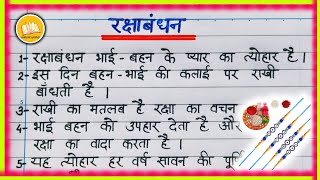 रक्षाबंधन
1- रक्षाबंधन भाई-बहन के प्यार का त्योहार है।
2- इस दिन बहन-भाई की कलाई पर राखी
बाँधती है ।
3- राखी का मतलब है रक्षा का वचन
4- भाई बहन को उपहार देता है और
रक्षा का वादा करता है ।
5- यह त्योहार हर वर्ष सावन की